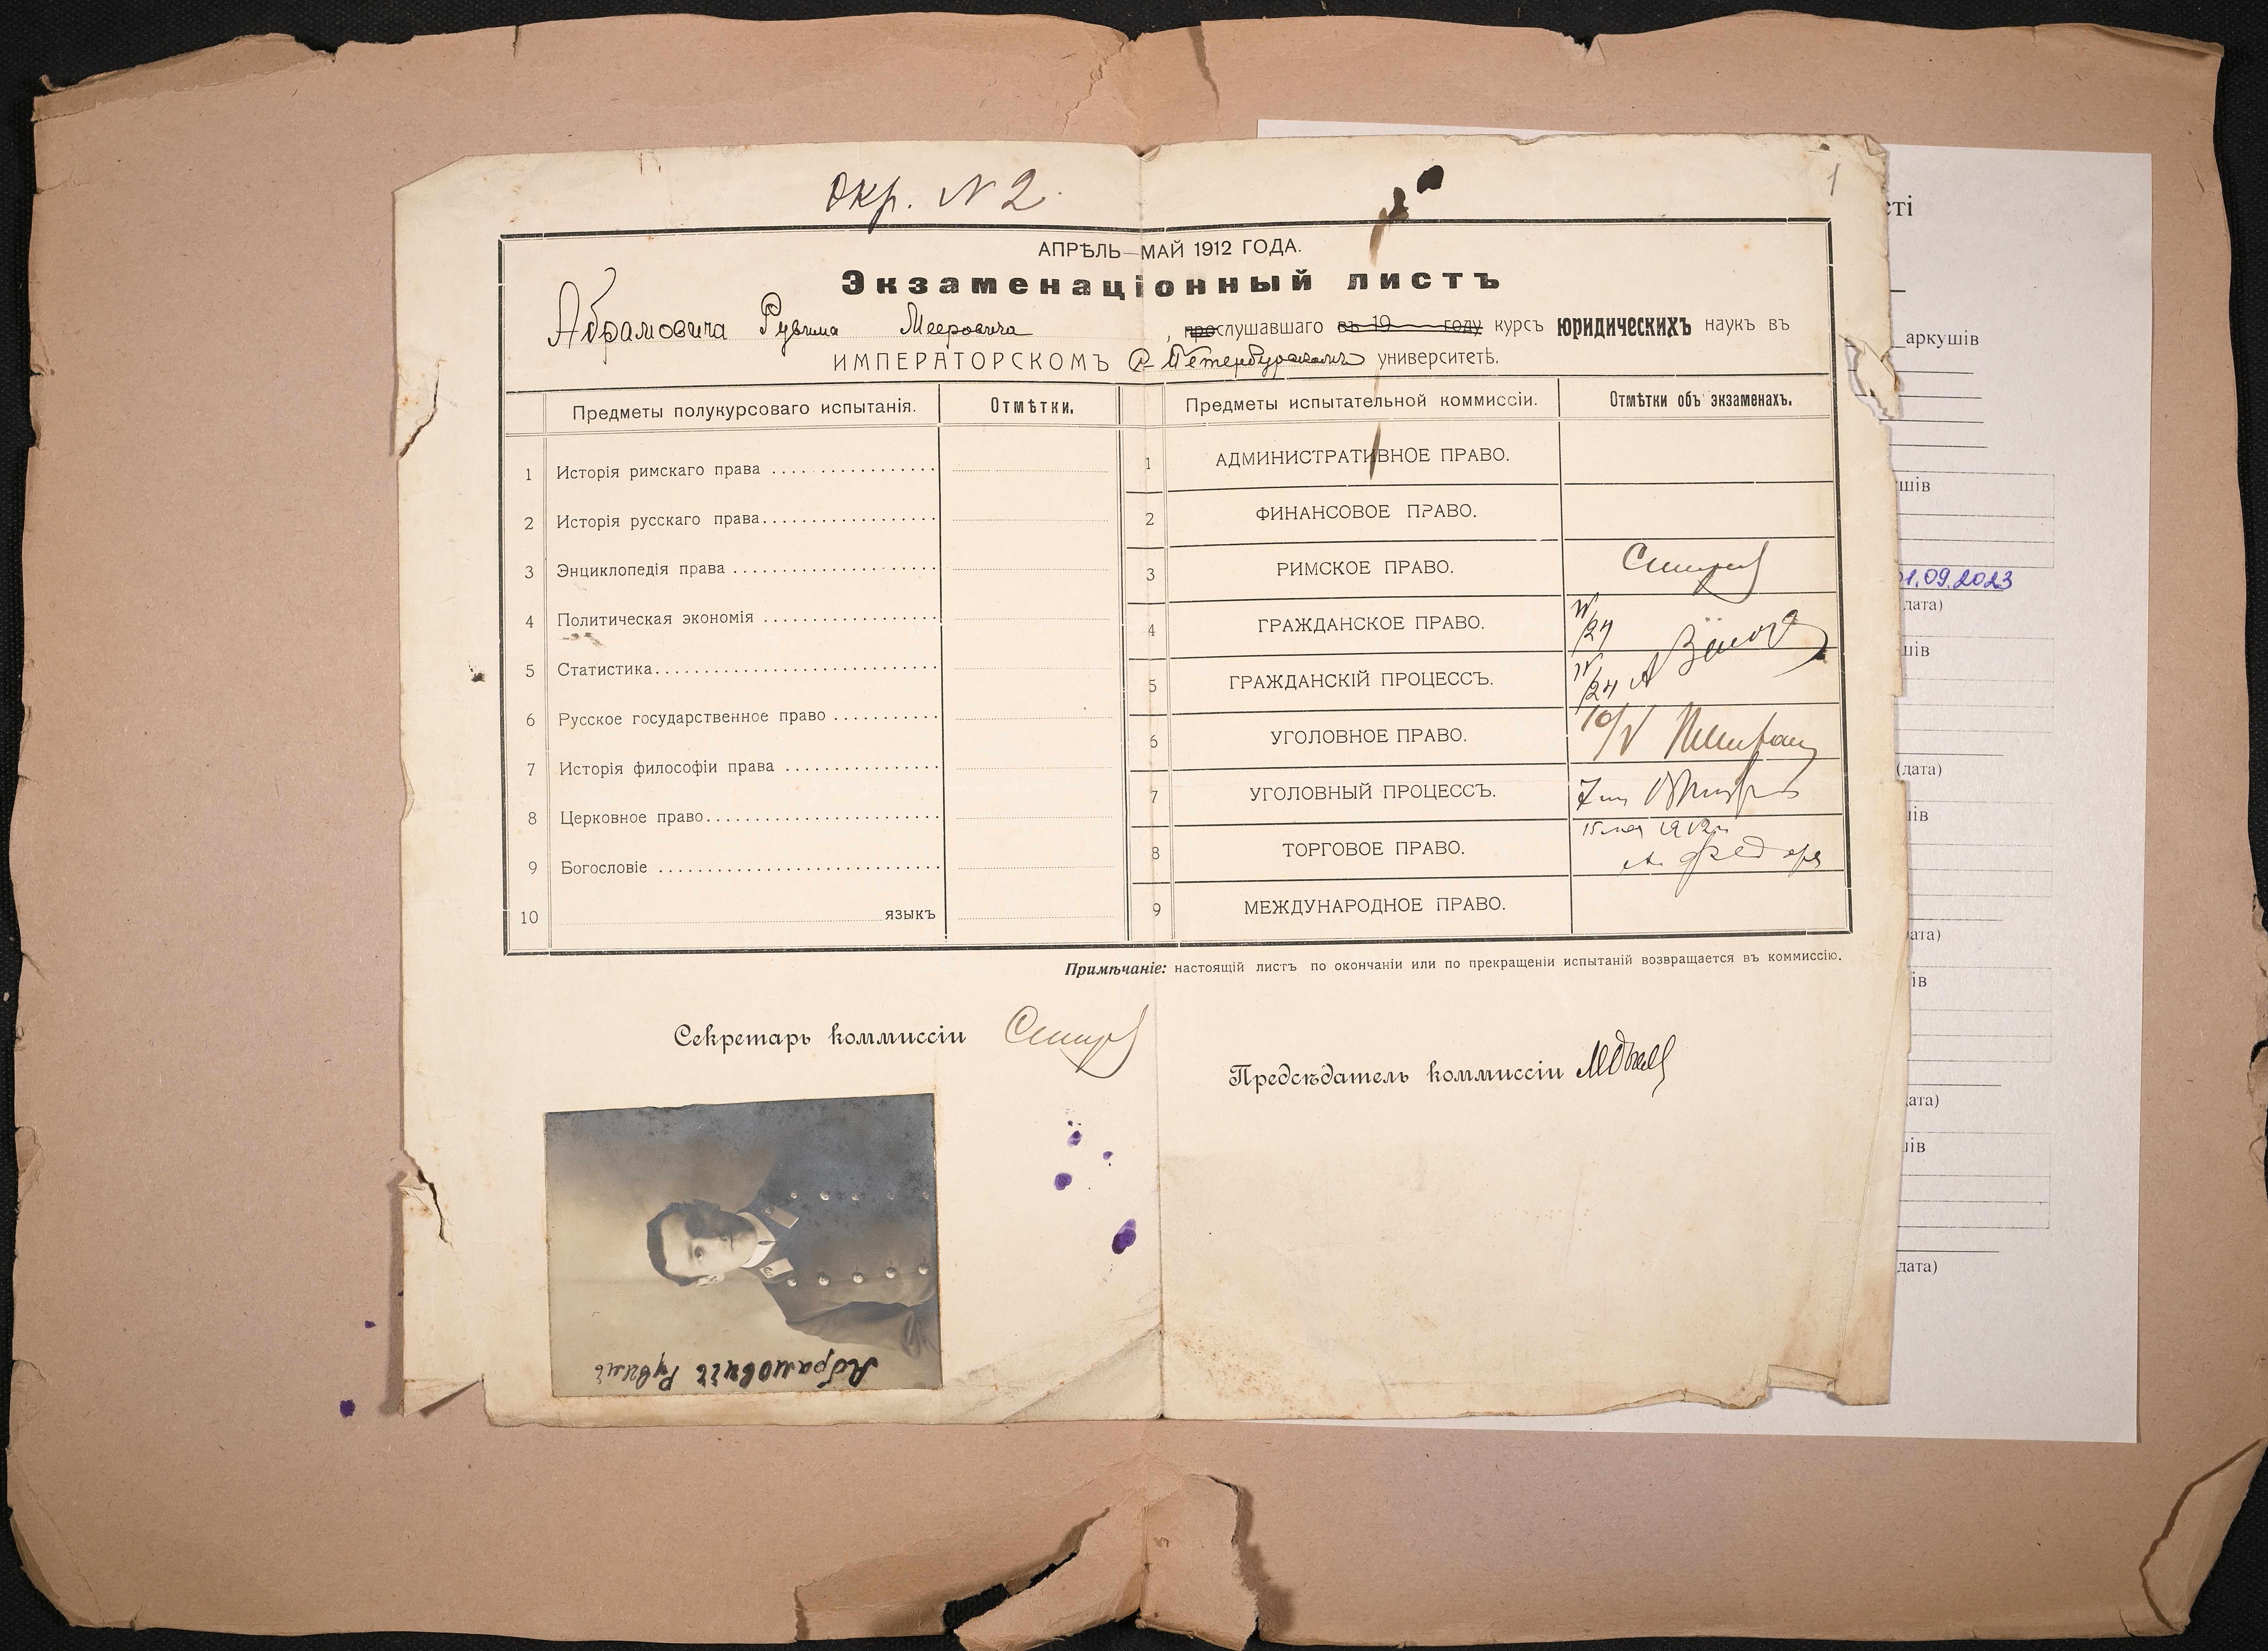 Окр. N 2
1
АПРѢЛЬ—МАЙ 1912 ГОДА.
Экзаменаціонный листъ
Абрамовича Рувима Мееровича, прослушавшаго въ 19 году курсъ юридическихъ наукъ въ
ИМПЕРАТОРСКОМЪ С-Петербургскомъ университетѣ.
Предметы полукурсоваго испытанія. Отмѣтки. Предметы испытательной коммиссіи. Отмѣтки объ экзаменахъ.
1 Исторія римскаго права
2 Исторія русскаго права
3 Энциклопедія права
4 Политическая экономія
5 Статистика
6 Русское государственное право
7 Исторія философіи права
8 Церковное право
9 Богословіе
10 языкъ
1 АДМИНИСТРАТИВНОЕ ПРАВО.
2 ФИНАНСОВОЕ ПРАВО.
3 РИМСКОЕ ПРАВО.
4 ГРАЖДАНСКОЕ ПРАВО. IV/24
5 ГРАЖДАНСКІЙ ПРОЦЕССЪ. IV/24
6 УГОЛОВНОЕ ПРАВО. 10/V
7 УГОЛОВНЫЙ ПРОЦЕССЪ.
8 ТОРГОВОЕ ПРАВО. 15 мая 1912 г.
9 МЕЖДУНАРОДНОЕ ПРАВО.
Примѣчаніе: настоящій листъ по окончаніи или по прекращеніи испытаній возвращается въ коммиссію.
Секретарь коммиссіи
Предсѣдатель коммиссіи
Абрамовичъ Рувимъ
сті
аркушів
шів
01.09.2023
дата)
шів
(дата)
ів
ата)
ів
ата)
ів
дата)